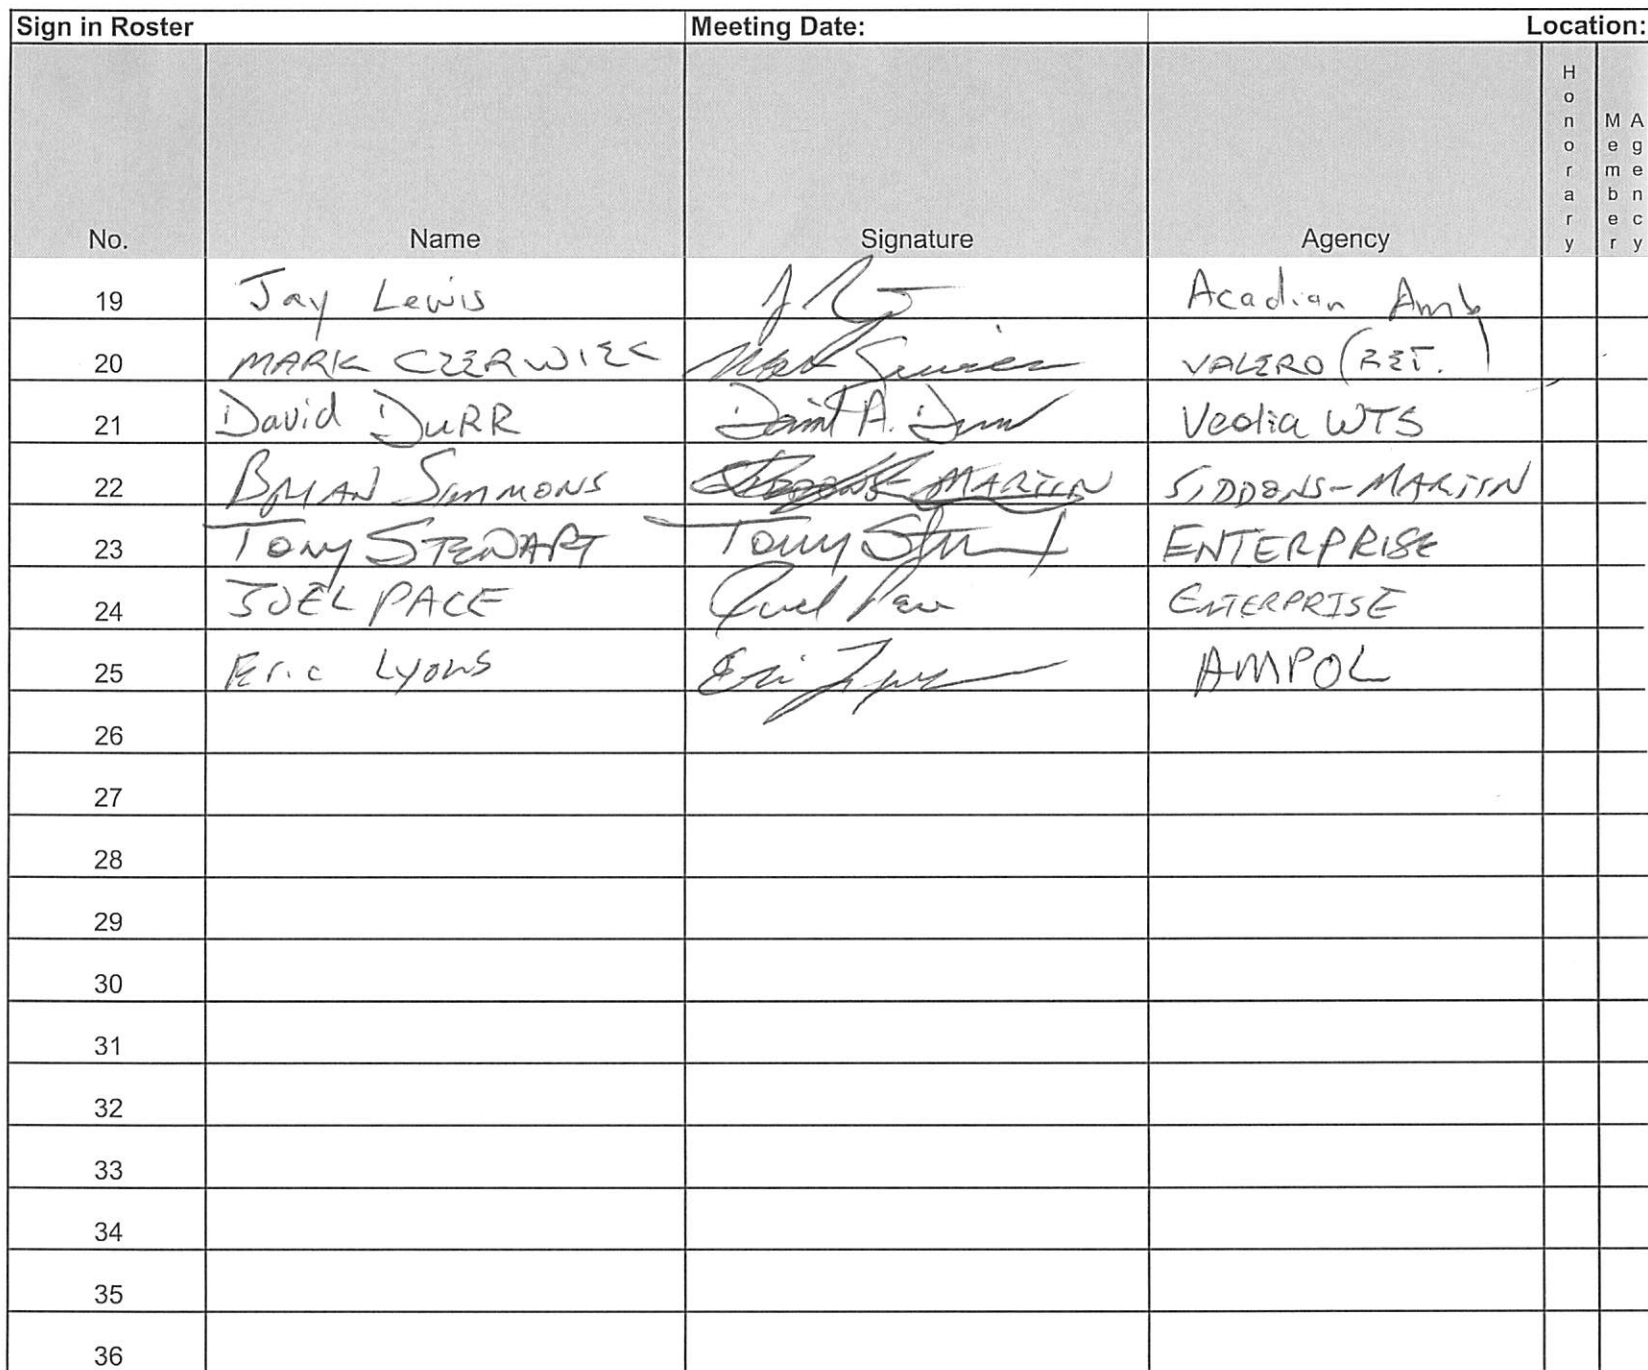 Sign in Roster Meeting Date: Location:
No. Name Signature Agency Honorary Member Agency
19 Jay Lewis Acadian Amb
20 MARK CZERWIEC VALERO (RET.)
21 David DuRR David A. Durr Veolia WTS
22 BRIAN SIMMONS MARTIN SIDDENS-MARTIN
23 TONY STEWART Tony ENTERPRISE
24 JOEL PACE Joel Pace ENTERPRISE
25 Eric Lyons Eric AMPOL
26
27
28
29
30
31
32
33
34
35
36